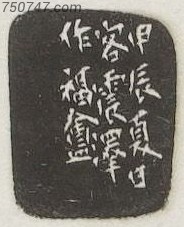 750747.com
甲辰夏日
客震澤
作福盦